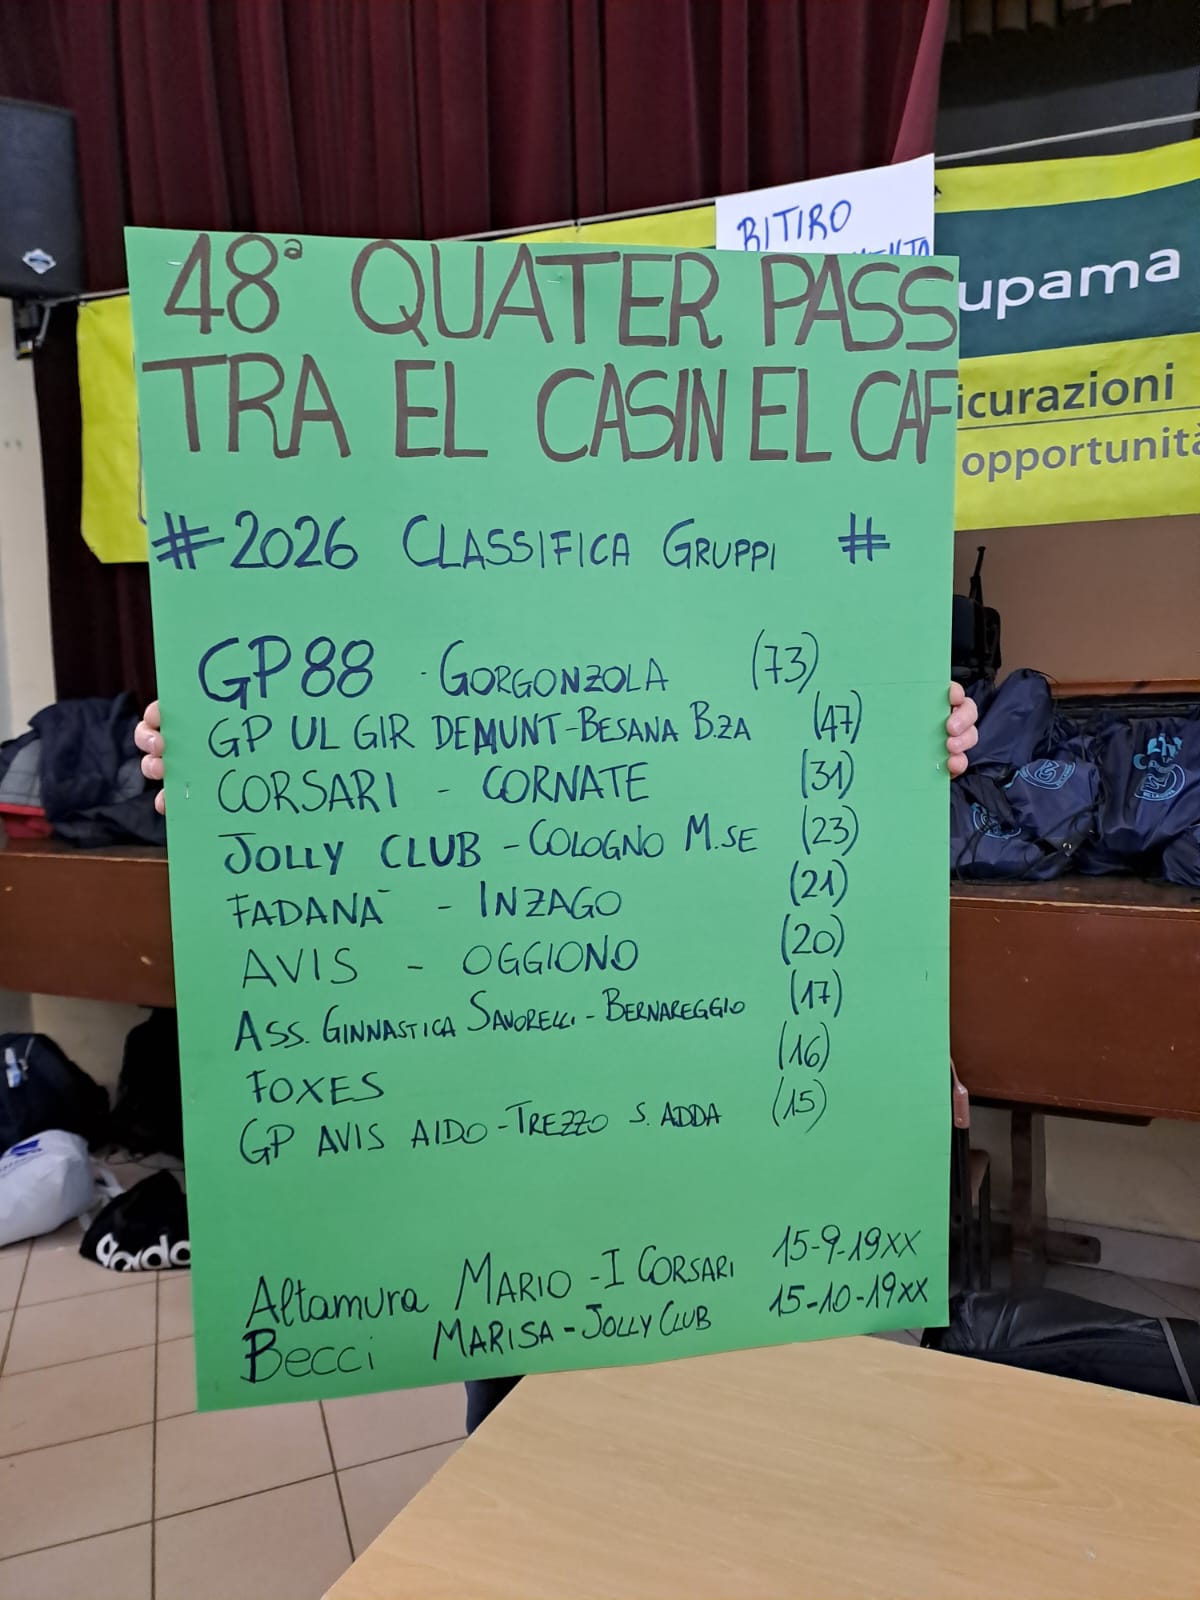 RITIRO
48ª QUATER PASS
TRA EL CASIN EL CAF
upama
icurazioni
opportunità
# 2026 CLASSIFICA GRUPPI #
GP88 - GORGONZOLA (73)
GP UL GIR DEMUNT - BESANA B.ZA (47)
CORSARI - CORNATE (31)
JOLLY CLUB - COLOGNO M.SE (23)
FADANA - INZAGO (21)
AVIS - OGGIONO (20)
ASS. GINNASTICA SAVORELLI - BERNAREGGIO (17)
FOXES (16)
GP AVIS AIDO - TREZZO S. ADDA (15)
Altamura MARIO - I CORSARI 15-9-19XX
Becci MARISA - JOLLY CLUB 15-10-19XX